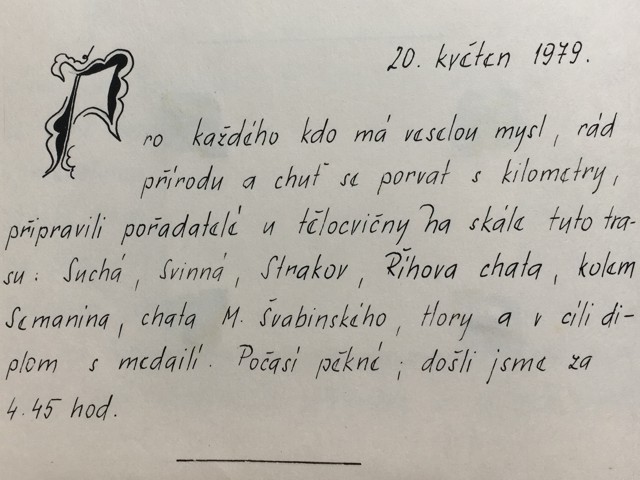 20. květen 1979.
Pro každého kdo má veselou mysl, rád
přírodu a chuť se porvat s kilometry,
připravili pořadatelé u tělocvičny na skále tuto tra-
su: Suchá, Svinná, Strakov, Říhova chata, kolem
Semanina, chata M. Švabinského, Hory a v cíli di-
plom s medailí. Počasí pěkné; došli jsme za
4.45 hod.